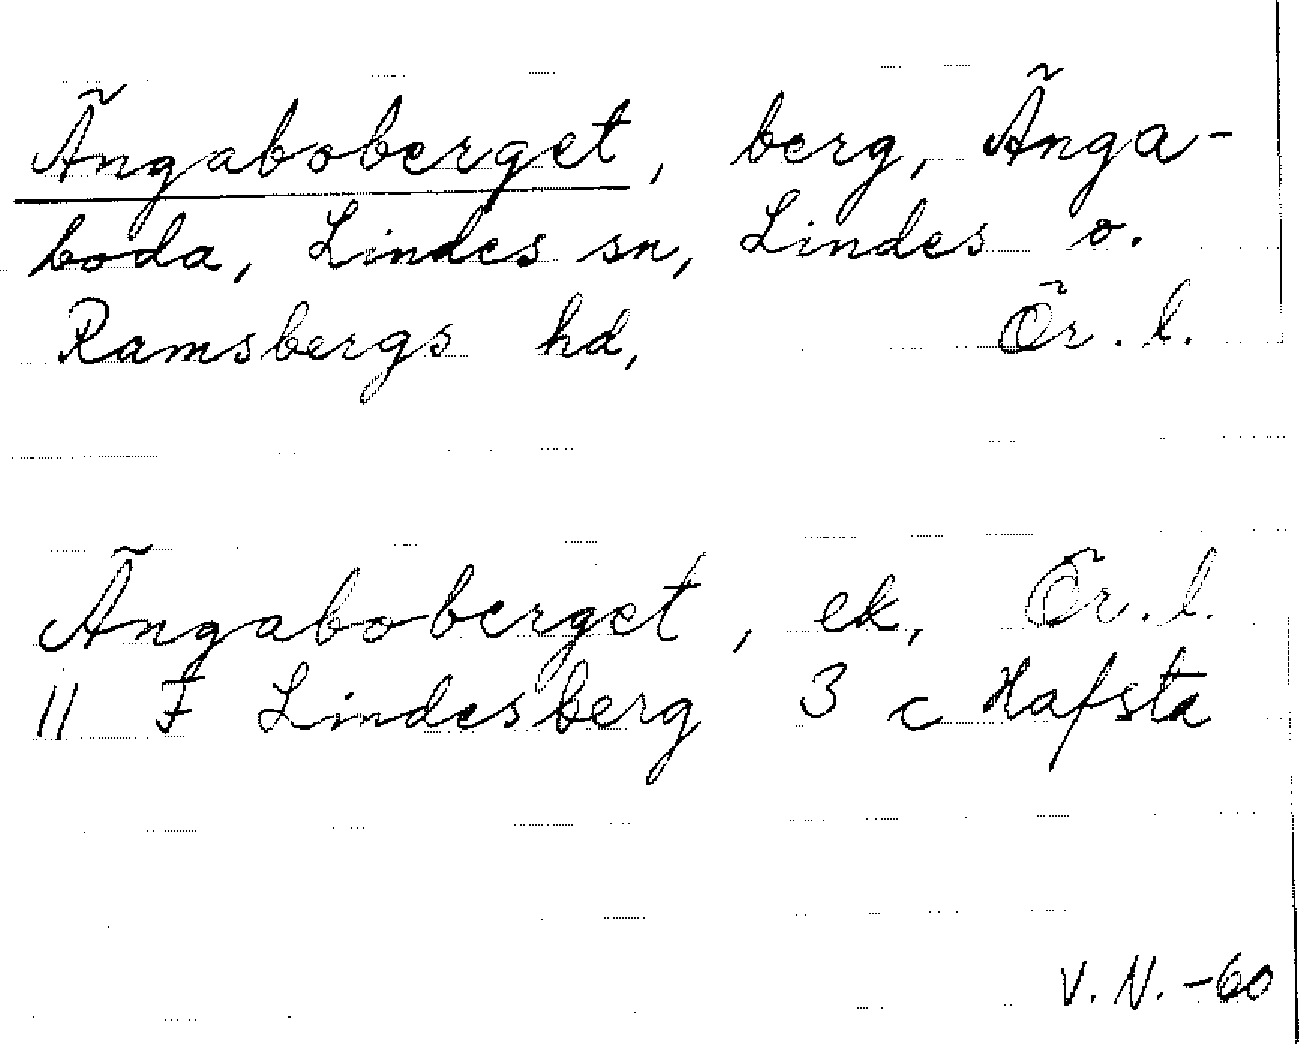 Ängaboberget, berg, Änga-
boda, Lindes sn, Lindes o.
Ramsbergs hd, Ör. l.
Ängaboberget, ek, Ör. l.
11 F Lindesberg 3 c Hafsta
V. N. -60